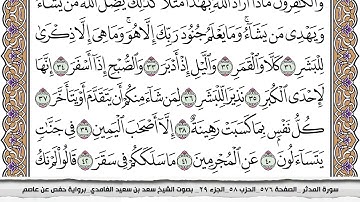 وَالْكَافِرُونَ مَاذَا أَرَادَ اللَّهُ بِهَذَا مَثَلًا كَذَلِكَ يُضِلُّ اللَّهُ مَن يَشَاءُ
وَيَهْدِي مَن يَشَاءُ وَمَا يَعْلَمُ جُنُودَ رَبِّكَ إِلَّا هُوَ وَمَا هِيَ إِلَّا ذِكْرَى
لِلْبَشَرِ ٣١ كَلَّا وَالْقَمَرِ ٣٢ وَاللَّيْلِ إِذْ أَدْبَرَ ٣٣ وَالصُّبْحِ إِذَا أَسْفَرَ ٣٤ إِنَّهَا
لَإِحْدَى الْكُبَرِ ٣٥ نَذِيرًا لِّلْبَشَرِ ٣٦ لِمَن شَاءَ مِنكُمْ أَن يَتَقَدَّمَ أَوْ يَتَأَخَّرَ ٣٧
كُلُّ نَفْسٍ بِمَا كَسَبَتْ رَهِينَةٌ ٣٨ إِلَّا أَصْحَابَ الْيَمِينِ ٣٩ فِي جَنَّاتٍ
يَتَسَاءَلُونَ ٤٠ عَنِ الْمُجْرِمِينَ ٤١ مَا سَلَكَكُمْ فِي سَقَرَ ٤٢ قَالُوا لَمْ نَكُ
سورة المدثر _الصفحة ٥٧٦_ الحزب ٥٨_ الجزء ٢٩_ بصوت الشيخ سعد بن سعيد الغامدي_ برواية حفص عن عاصم